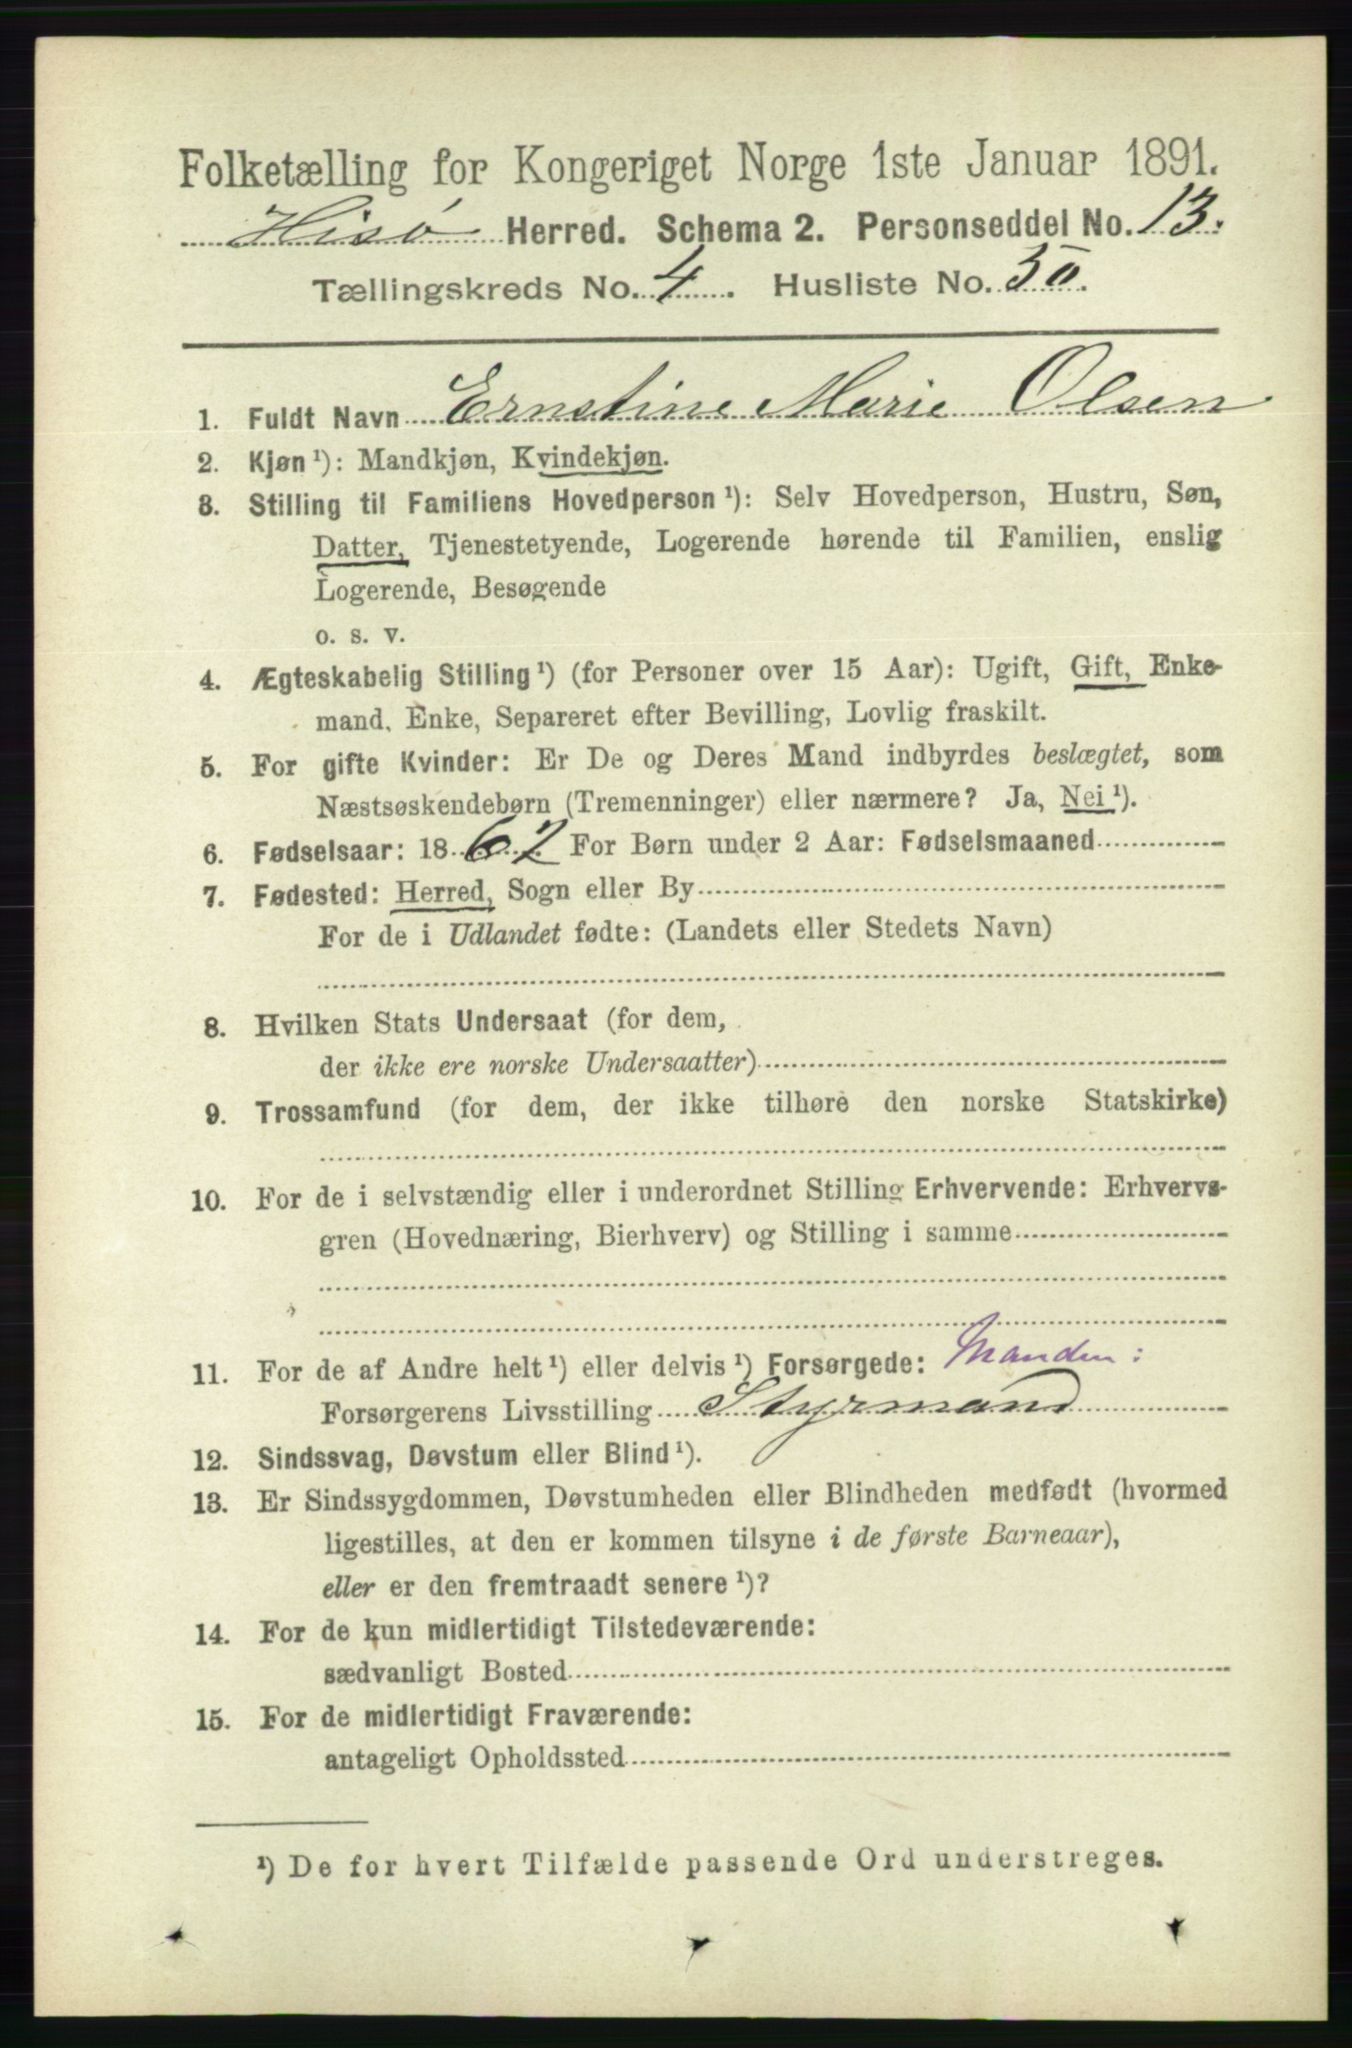 Folketælling for Kongeriget Norge 1ste Januar 1891.
Hisö Herred. Schema 2. Personseddel No. 13.
Tællingskreds No. 4. Husliste No. 30.
1. Fuldt Navn Ernstine Marie Olsen
2. Kjøn ¹): Mandkjøn, Kvindekjøn.
3. Stilling til Familiens Hovedperson ¹): Selv Hovedperson, Hustru, Søn,
Datter, Tjenestetyende, Logerende hørende til Familien, enslig
Logerende, Besøgende
o. s. v.
4. Ægteskabelig Stilling ¹) (for Personer over 15 Aar): Ugift, Gift, Enke-
mand, Enke, Separeret efter Bevilling, Lovlig fraskilt.
5. For gifte Kvinder: Er De og Deres Mand indbyrdes beslægtet, som
Næstsøskendebørn (Tremenninger) eller nærmere? Ja, Nei ¹).
6. Fødselsaar: 1862 For Børn under 2 Aar: Fødselsmaaned
7. Fødested: Herred, Sogn eller By
For de i Udlandet fødte: (Landets eller Stedets Navn)
8. Hvilken Stats Undersaat (for dem,
der ikke ere norske Undersaatter)
9. Trossamfund (for dem, der ikke tilhøre den norske Statskirke)
10. For de i selvstændig eller i underordnet Stilling Erhvervende: Erhvervs-
gren (Hovednæring, Bierhverv) og Stilling i samme
11. For de af Andre helt ¹) eller delvis ¹) Forsørgede: Manden:
Forsørgerens Livsstilling Styrmand
12. Sindssvag, Døvstum eller Blind ¹).
13. Er Sindssygdommen, Døvstumheden eller Blindheden medfødt (hvormed
ligestilles, at den er kommen tilsyne i de første Barneaar),
eller er den fremtraadt senere ¹)?
14. For de kun midlertidigt Tilstedeværende:
sædvanligt Bosted
15. For de midlertidigt Fraværende:
antageligt Opholdssted
¹) De for hvert Tilfælde passende Ord understreges.